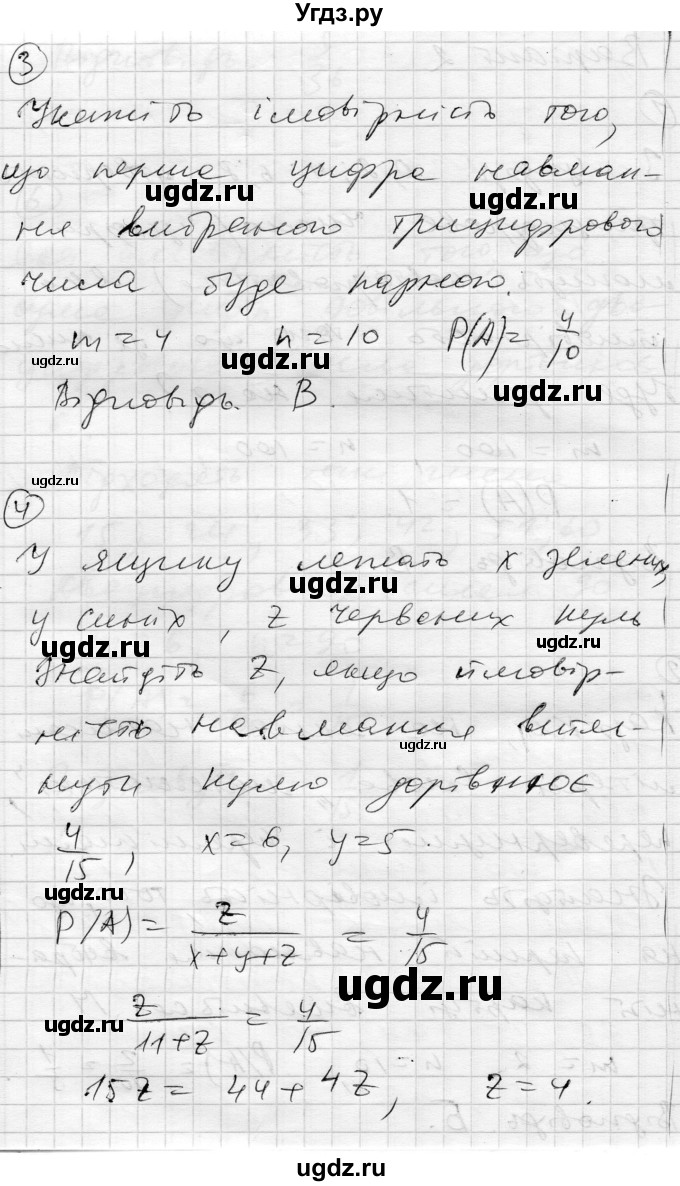 Угдз.ру
3
Укажіть імовірність того,
що перша цифра навман-
ня вибраного трицифрового
ugdz.ru ugdz.ru
числа буде парною.
m = 4 n = 10 P(A) = 4/10
ugdz.ru ugdz.ru ugdz.ru
Відповідь. В.
ugdz.ru
4
У ящику лежать x зелених,
ugdz.ru
y синіх, z червоних куль
ugdz.ru ugdz.ru
Знайдіть z, якщо ймовір-
ність навмання витяг-
ugdz.ru
нути кулю дорівнює
4/15, x = 6, y = 5.
ugdz.ru
P(A) = z/(x+y+z) = 4/15
ugdz.ru
z/(11+z) = 4/15
ugdz.ru
15z = 44 + 4z, z = 4.
ugdz.ru